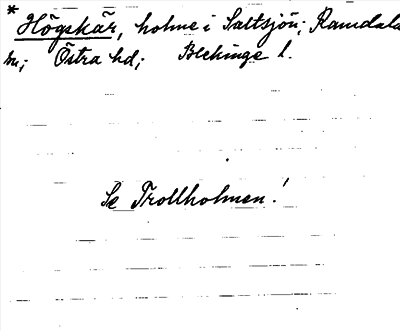 * Högskär, holme i Saltsjön; Ramdala
sn; Östra hd; Blekinge l.
Se Trollholmen!